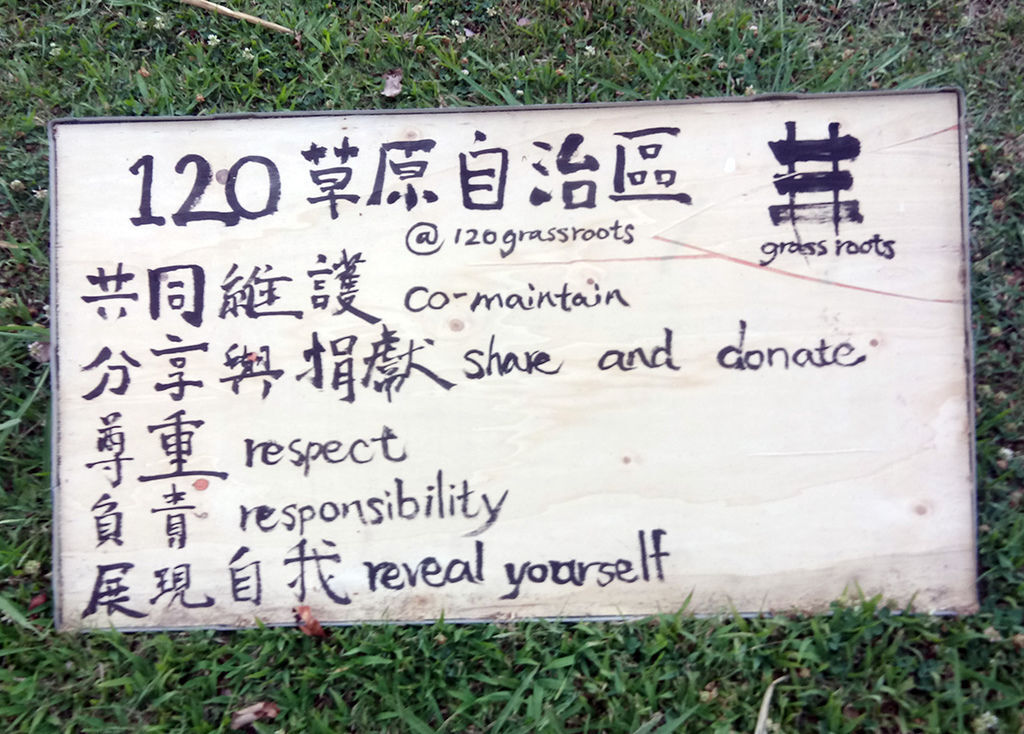 120 草原自治區
@120grassroots
grass roots
共同維護 co-maintain
分享與捐獻 share and donate
尊重 respect
負責 responsibility
展現自我 reveal yourself